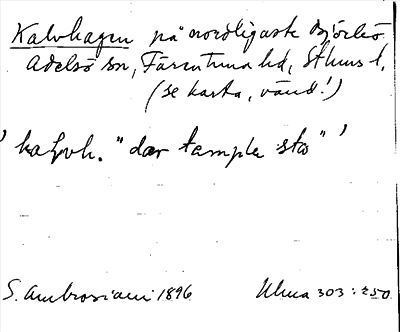 Kalvhagen på nordligaste Björkö
Adelsö sn, Färentuna hd, Sthms l.
(se karta, vänd!)
' kaLvh. "där templa sto" '
S. Ambrosiani 1896 Ulma 303:250.